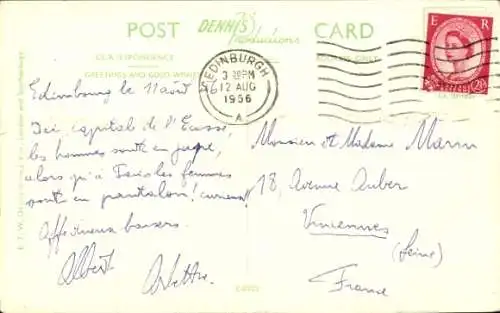 POST CARD
DENNIS
Productions
CORRESPONDENCE
GREETINGS AND GOOD WISHES
ADDRESS ONLY
EDINBURGH
3 PM
12 AUG
1956
A
E R
2½
Edimbourg le 11 août
Ici capitale de l'Ecosse
les hommes sont en jupe,
alors qu'à Paris les femmes
sont en pantalon!
Affectueux baisers
Albert Arlette
Monsieur et Madame Marin
18, Avenue Auber
Vincennes
(Seine)
France